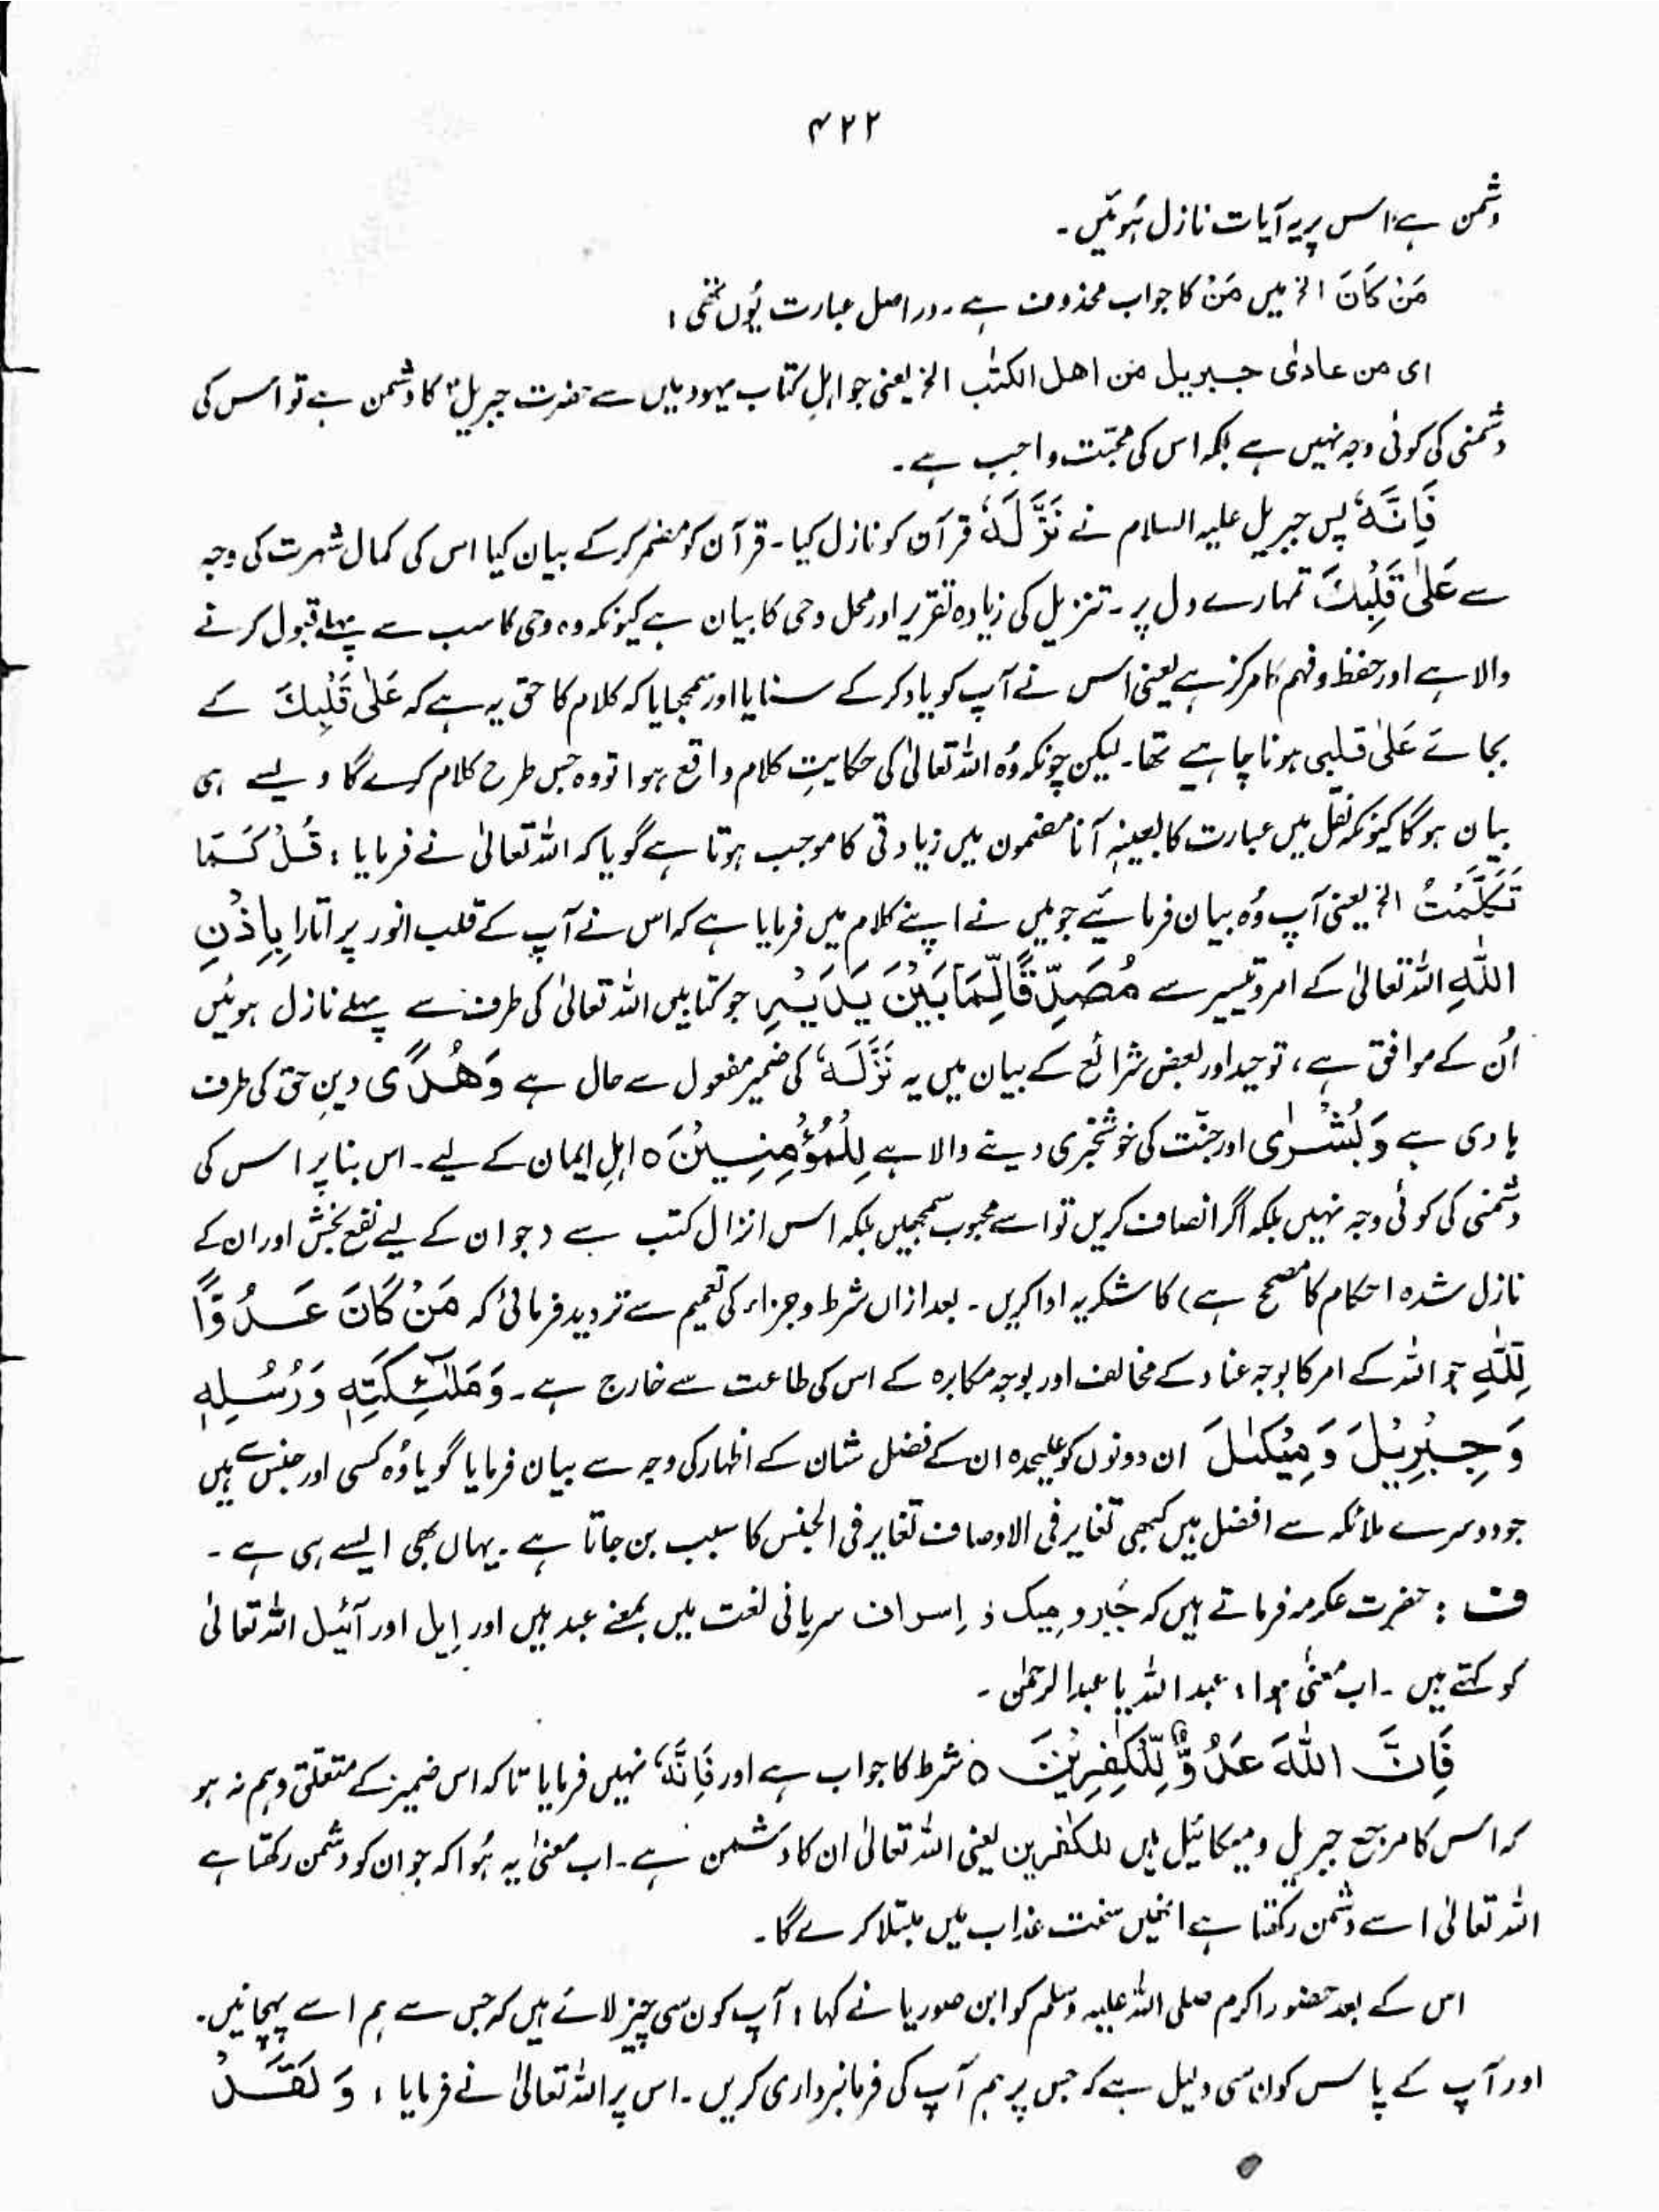 ۴۲۲
دشمن ہے؛ اس پر یہ آیات نازل ہُوئیں۔
مَنْ كَانَ الخ میں مَنْ کا جواب محذوف ہے۔ دراصل عبارت یُوں تھی:
ای من عادٰی جبریل من اهل الکتٰب الخ یعنی جو اہلِ کتاب یہود میں سے حضرت جبریلؑ کا دشمن ہے تو اس کی
دشمنی کی کوئی وجہ نہیں ہے بلکہ اس کی محبّت واجب ہے۔
فَاِنَّهٗ پس جبریل علیہ السلام نے نَزَّلَهٗ قرآن کو نازل کیا۔ قرآن کو مضمر کرکے بیان کیا اس کی کمال شہرت کی وجہ
سے عَلٰی قَلْبِكَ تمہارے دل پر۔ تنزیل کی زیادہ تقریر اور محل وحی کا بیان ہے کیونکہ وہ وحی کا سب سے پہلے قبول کرنے
والا ہے اور حفظ و فہم کا مرکز ہے یعنی اس نے آپ کو یاد کرکے سنایا اور سمجھایا کہ کلام کا حق یہ ہے کہ عَلٰی قَلْبِكَ کے
بجائے عَلٰی قلبی ہونا چاہیے تھا۔ لیکن چونکہ وُہ اللہ تعالیٰ کی حکایتِ کلام واقع ہوا تو وہ جس طرح کلام کرے گا ویسے ہی
بیان ہوگا کیونکہ نقل میں عبارت کا بعینہٖ آنا مضمون میں زیادتی کا موجب ہوتا ہے گویا کہ اللہ تعالیٰ نے فرمایا: قُلْ كَمَا
تَكَلَّمْتُ الخ یعنی آپ وُہ بیان فرمائیے جو میں نے اپنے کلام میں فرمایا ہے کہ اس نے آپ کے قلب انور پر اتارا بِاِذْنِ
اللّٰهِ اللہ تعالیٰ کے امر و تیسیر سے مُصَدِّقًا لِّمَا بَيْنَ يَدَيْهِ جو کتابیں اللہ تعالیٰ کی طرف سے پہلے نازل ہوئیں
اُن کے موافق ہے، توحید اور بعض شرائع کے بیان میں یہ نَزَّلَهٗ کی ضمیر مفعول سے حال ہے وَهُدًى دینِ حق کی طرف
ہادی ہے وَبُشْرٰى اور جنّت کی خوشخبری دینے والا ہے لِلْمُؤْمِنِيْنَ ○ اہلِ ایمان کے لیے۔ اس بنا پر اس کی
دشمنی کی کوئی وجہ نہیں بلکہ اگر انصاف کریں تو اسے محبوب سمجھیں بلکہ اس انزال کتب ہے (جو ان کے لیے نفع بخش اور ان کے
نازل شدہ احکام کا مصحح ہے) کا شکریہ ادا کریں۔ بعد ازاں شرط و جزاء کی تعمیم سے تردید فرمائی کہ مَنْ كَانَ عَدُوًّا
لِّلّٰهِ جو اللہ کے امر کا بوجہ عناد کے مخالف اور بوجہ مکابرہ کے اس کی طاعت سے خارج ہے۔ وَمَلٰٓئِكَتِهٖ وَرُسُلِهٖ
وَجِبْرِيْلَ وَمِيْكٰلَ ان دونوں کو علیحدہ ان کے فضل شان کے اظہار کی وجہ سے بیان فرمایا گویا وُہ کسی اور جنس سے ہیں
جو دوسرے ملائکہ سے افضل ہیں کبھی تغایر فی الاوصاف تغایر فی الجنس کا سبب بن جاتا ہے۔ یہاں بھی ایسے ہی ہے۔
ف: حضرت عکرمہ فرماتے ہیں کہ جَبر و مِیک و اِسراف سریانی لغت میں بمعنے عبد ہیں اور اِیل اور آئیل اللہ تعالیٰ
کو کہتے ہیں۔ اب معنٰی ہوا: عبداللہ یا عبدالرحمٰن۔
فَاِنَّ اللّٰهَ عَدُوٌّ لِّلْكٰفِرِيْنَ ○ شرط کا جواب ہے اور فَاِنَّهٗ نہیں فرمایا تاکہ اس ضمیر کے متعلّق وہم نہ ہو
کہ اس کا مرجع جبریل و میکائیل ہیں للکٰفرین یعنی اللہ تعالیٰ ان کا دشمن ہے۔ اب معنٰی یہ ہُوا کہ جو ان کو دشمن رکھتا ہے
اللہ تعالیٰ اسے دشمن رکھتا ہے انھیں سخت عذاب میں مبتلا کرے گا۔
اس کے بعد حضور اکرم صلی اللہ علیہ وسلم کو ابن صوریا نے کہا: آپ کون سی چیز لائے ہیں کہ جس سے ہم اسے پہچانیں۔
اور آپ کے پاس کون سی دلیل ہے کہ جس پر ہم آپ کی فرمانبرداری کریں۔ اس پر اللہ تعالیٰ نے فرمایا: وَلَقَدْ